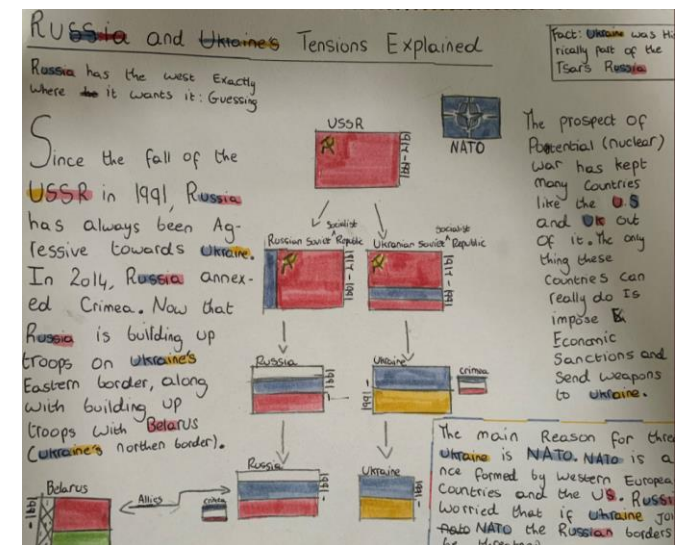 Russia and Ukraine's Tensions Explained
Russia has the west Exactly
where it wants it: Guessing
Fact: Ukraine was His
rically part of the
Tsars Russia
Since the fall of the
USSR in 1991, Russia
has always been Ag-
ressive towards Ukraine.
In 2014, Russia annex-
ed Crimea. Now that
Russia is building up
troops on Ukraine's
Eastern border, along
with building up
troops with Belarus
(Ukraine's northen border).
USSR
1917-1991
NATO
Socialist
Russian Soviet ^ Republic
1917-1991
Socialist
Ukranian Soviet ^ Republic
1917-1991
Russia
1991-
Ukraine
1991-
Crimea
Russia
1991-
Ukraine
1991-
Belarus
1991-
Allies
Crimea
The prospect of
Potential (nuclear)
war has kept
many Countries
like the U.S
and UK out
of it. The only
thing these
Countries can
really do Is
impose
Economic
Sanctions and
Send weapons
to Ukraine.
The main Reason for thre
Ukraine is NATO. NATO is a
nce formed by Western Europea
Countries and the US. Russi
Worried that if Ukraine joi
NATO the Russian borders